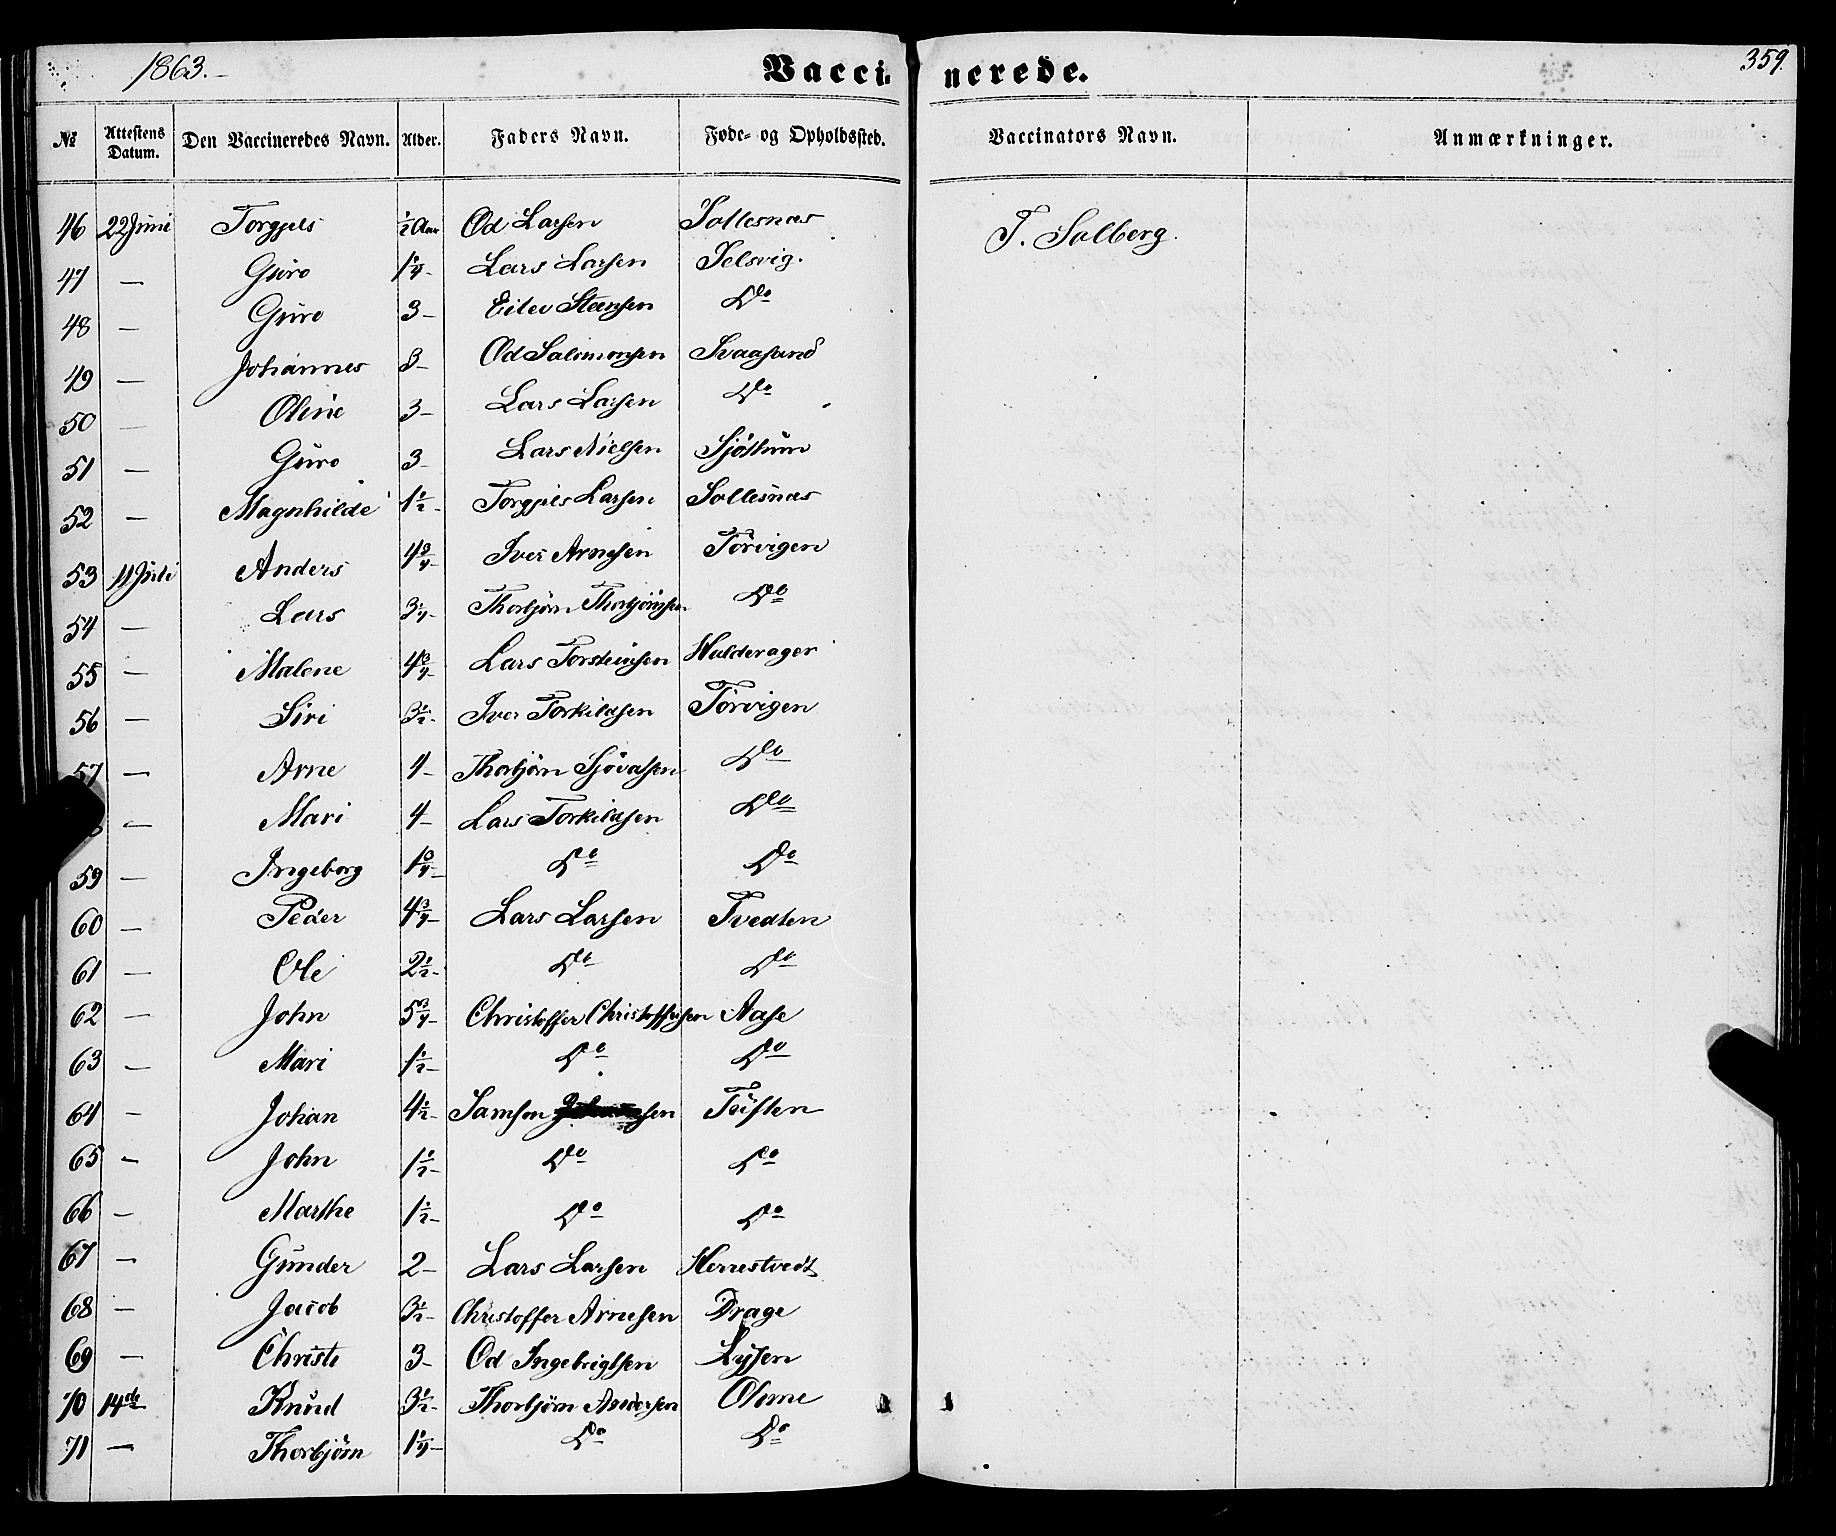 1863. Vaccinerede. 359.
№ Attestens Datum. Den Vaccineredes Navn. Alder. Faders Navn. Føde- og Opholdssted. Vaccinators Navn. Anmærkninger.
46 22 Juni Torgjels ½ Aar Od Larsen Sallesnæs T. Solberg.
47 — Guro 1¼ Lars Larsen Selsvig.
48 — Guro 3 Eilev Steensen Do
49 — Johannes 3 Od Salimonsen Svaasand
50 — Oline 3 Lars Larsen Do
51 — Guro 3 Lars Nielsen
52 — Magnhilde 1½ Torgjels Larsen Sallesnæs
53 11 Juli Anders 4¾ Iver Arnesen Tørvigen
54 — Lars 3¼ Thorbjørn Thorbjørnsen Do
55 — Malene 4¾ Lars Torsteinsen Hulderager
56 — Siri 3½ Iver Torkildsen Tørvigen
57 — Arne 4 Thorbjørn Sjovatsen Do
— Mari 4 Lars Torkildsen Do
59 — Ingeborg Do Do
60 — Peder 4¾ Lars Larsen Tvedten
61 — Ole 2½ Do Do
62 — John 5¾ Christoffer Christoffersen Aase
63 — Mari 1½ Do Do
64 — Johan 4½ Samson Tuften
65 — John 1½ Do Do
66 — Marthe 1½ Do Do
67 — Gunder 2 Lars Larsen Herrestvedt
68 — Jacob 3½ Christoffer Arnesen Drage
69 — Christi 3 Od Ingebrigtsen Lysen
70 14de Knud 3½ Thorbjørn Andersen
71 — Thorbjørn 1¼ Do Do